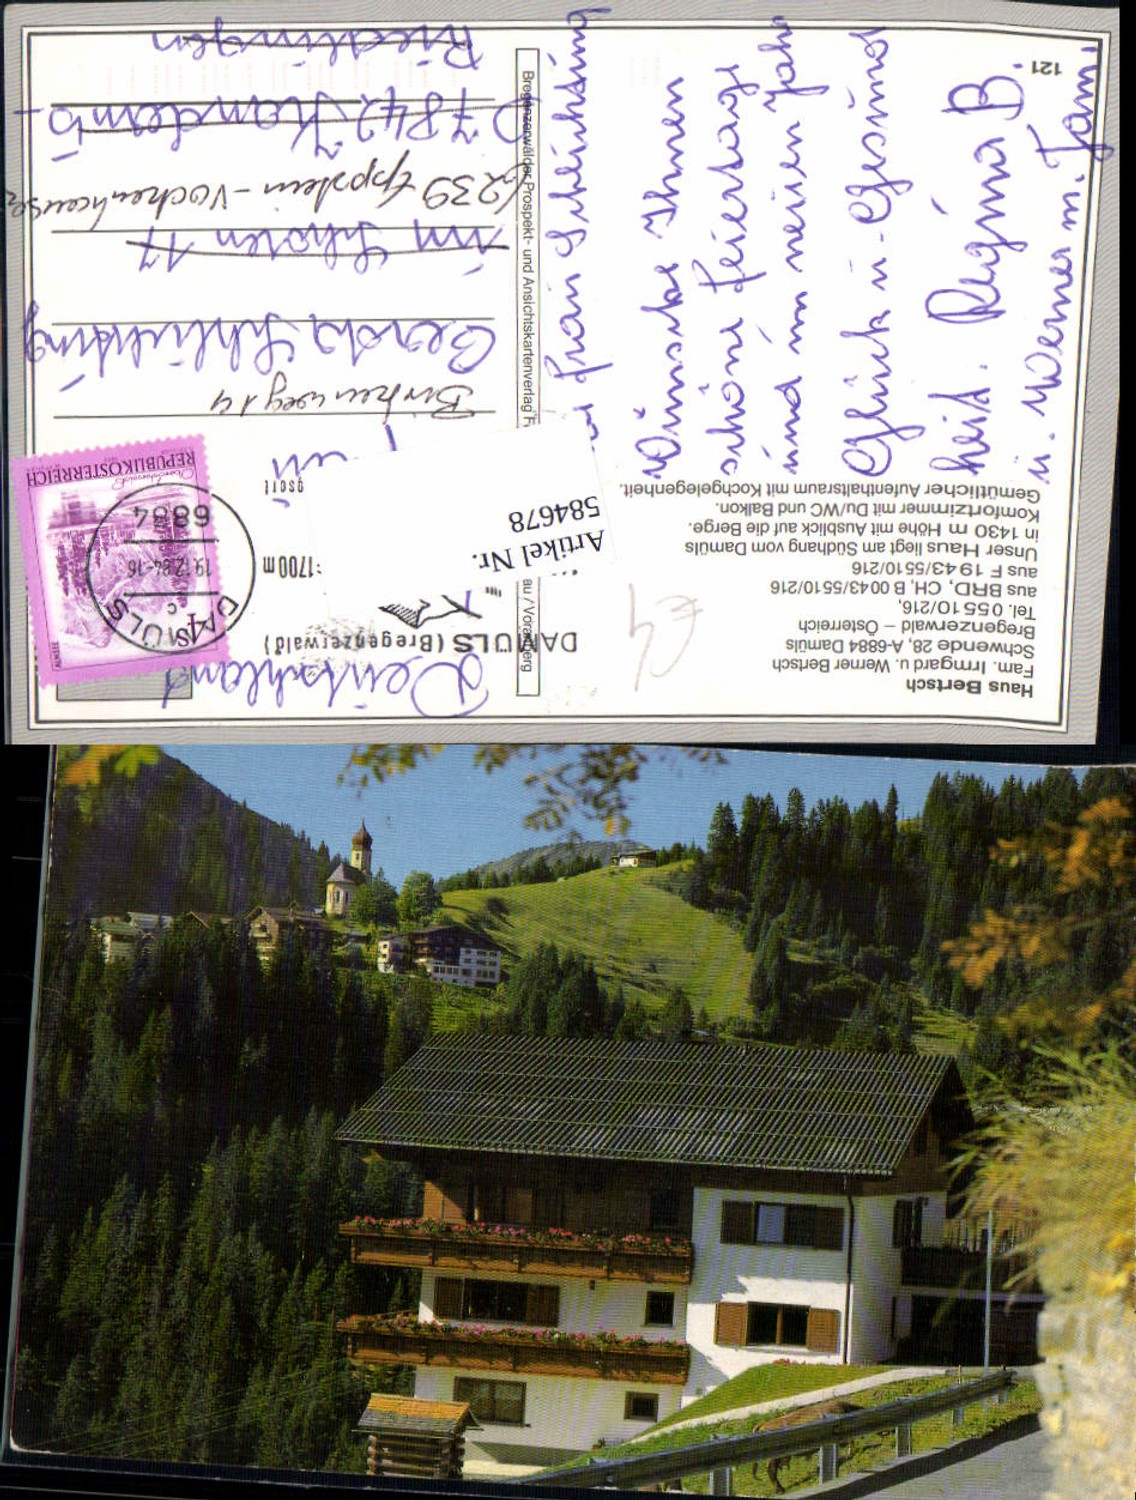 Haus Bertsch
Fam. Irmgard u. Werner Bertsch
Schwende 28, A-6884 Damüls
Bregenzerwald – Österreich
Tel. 0 55 10/216,
aus BRD, CH, B 0043/5510/216
aus F 19 43/55 10/216
Unser Haus liegt am Südhang vom Damüls
in 1430 m Höhe mit Ausblick auf die Berge.
Komfortzimmer mit Du/WC und Balkon.
Gemütlicher Aufenthaltsraum mit Kochgelegenheit.
121
Frau Schlichting
Wünsche Ihnen
schöne Feiertage
und im neuen Jahr
Glück u. Gesund
heit. Regina B.
u. Werner m. Fam.
Bregenzerwälder Prospekt- und Ansichtskartenverlag
DAMÜLS (Bregenzerwald)
1700m
Artikel Nr.
584678
REPUBLIK ÖSTERREICH
ALMSEE
4
6884
19.12.84-16
c
DAMÜLS
Birkenweg 14
Gerda Schlichting
im Scholen 17
6239 Eppstein-Vockenhausen
D 7842 Kandern 6-
Riedlingen
Deutschland
€4